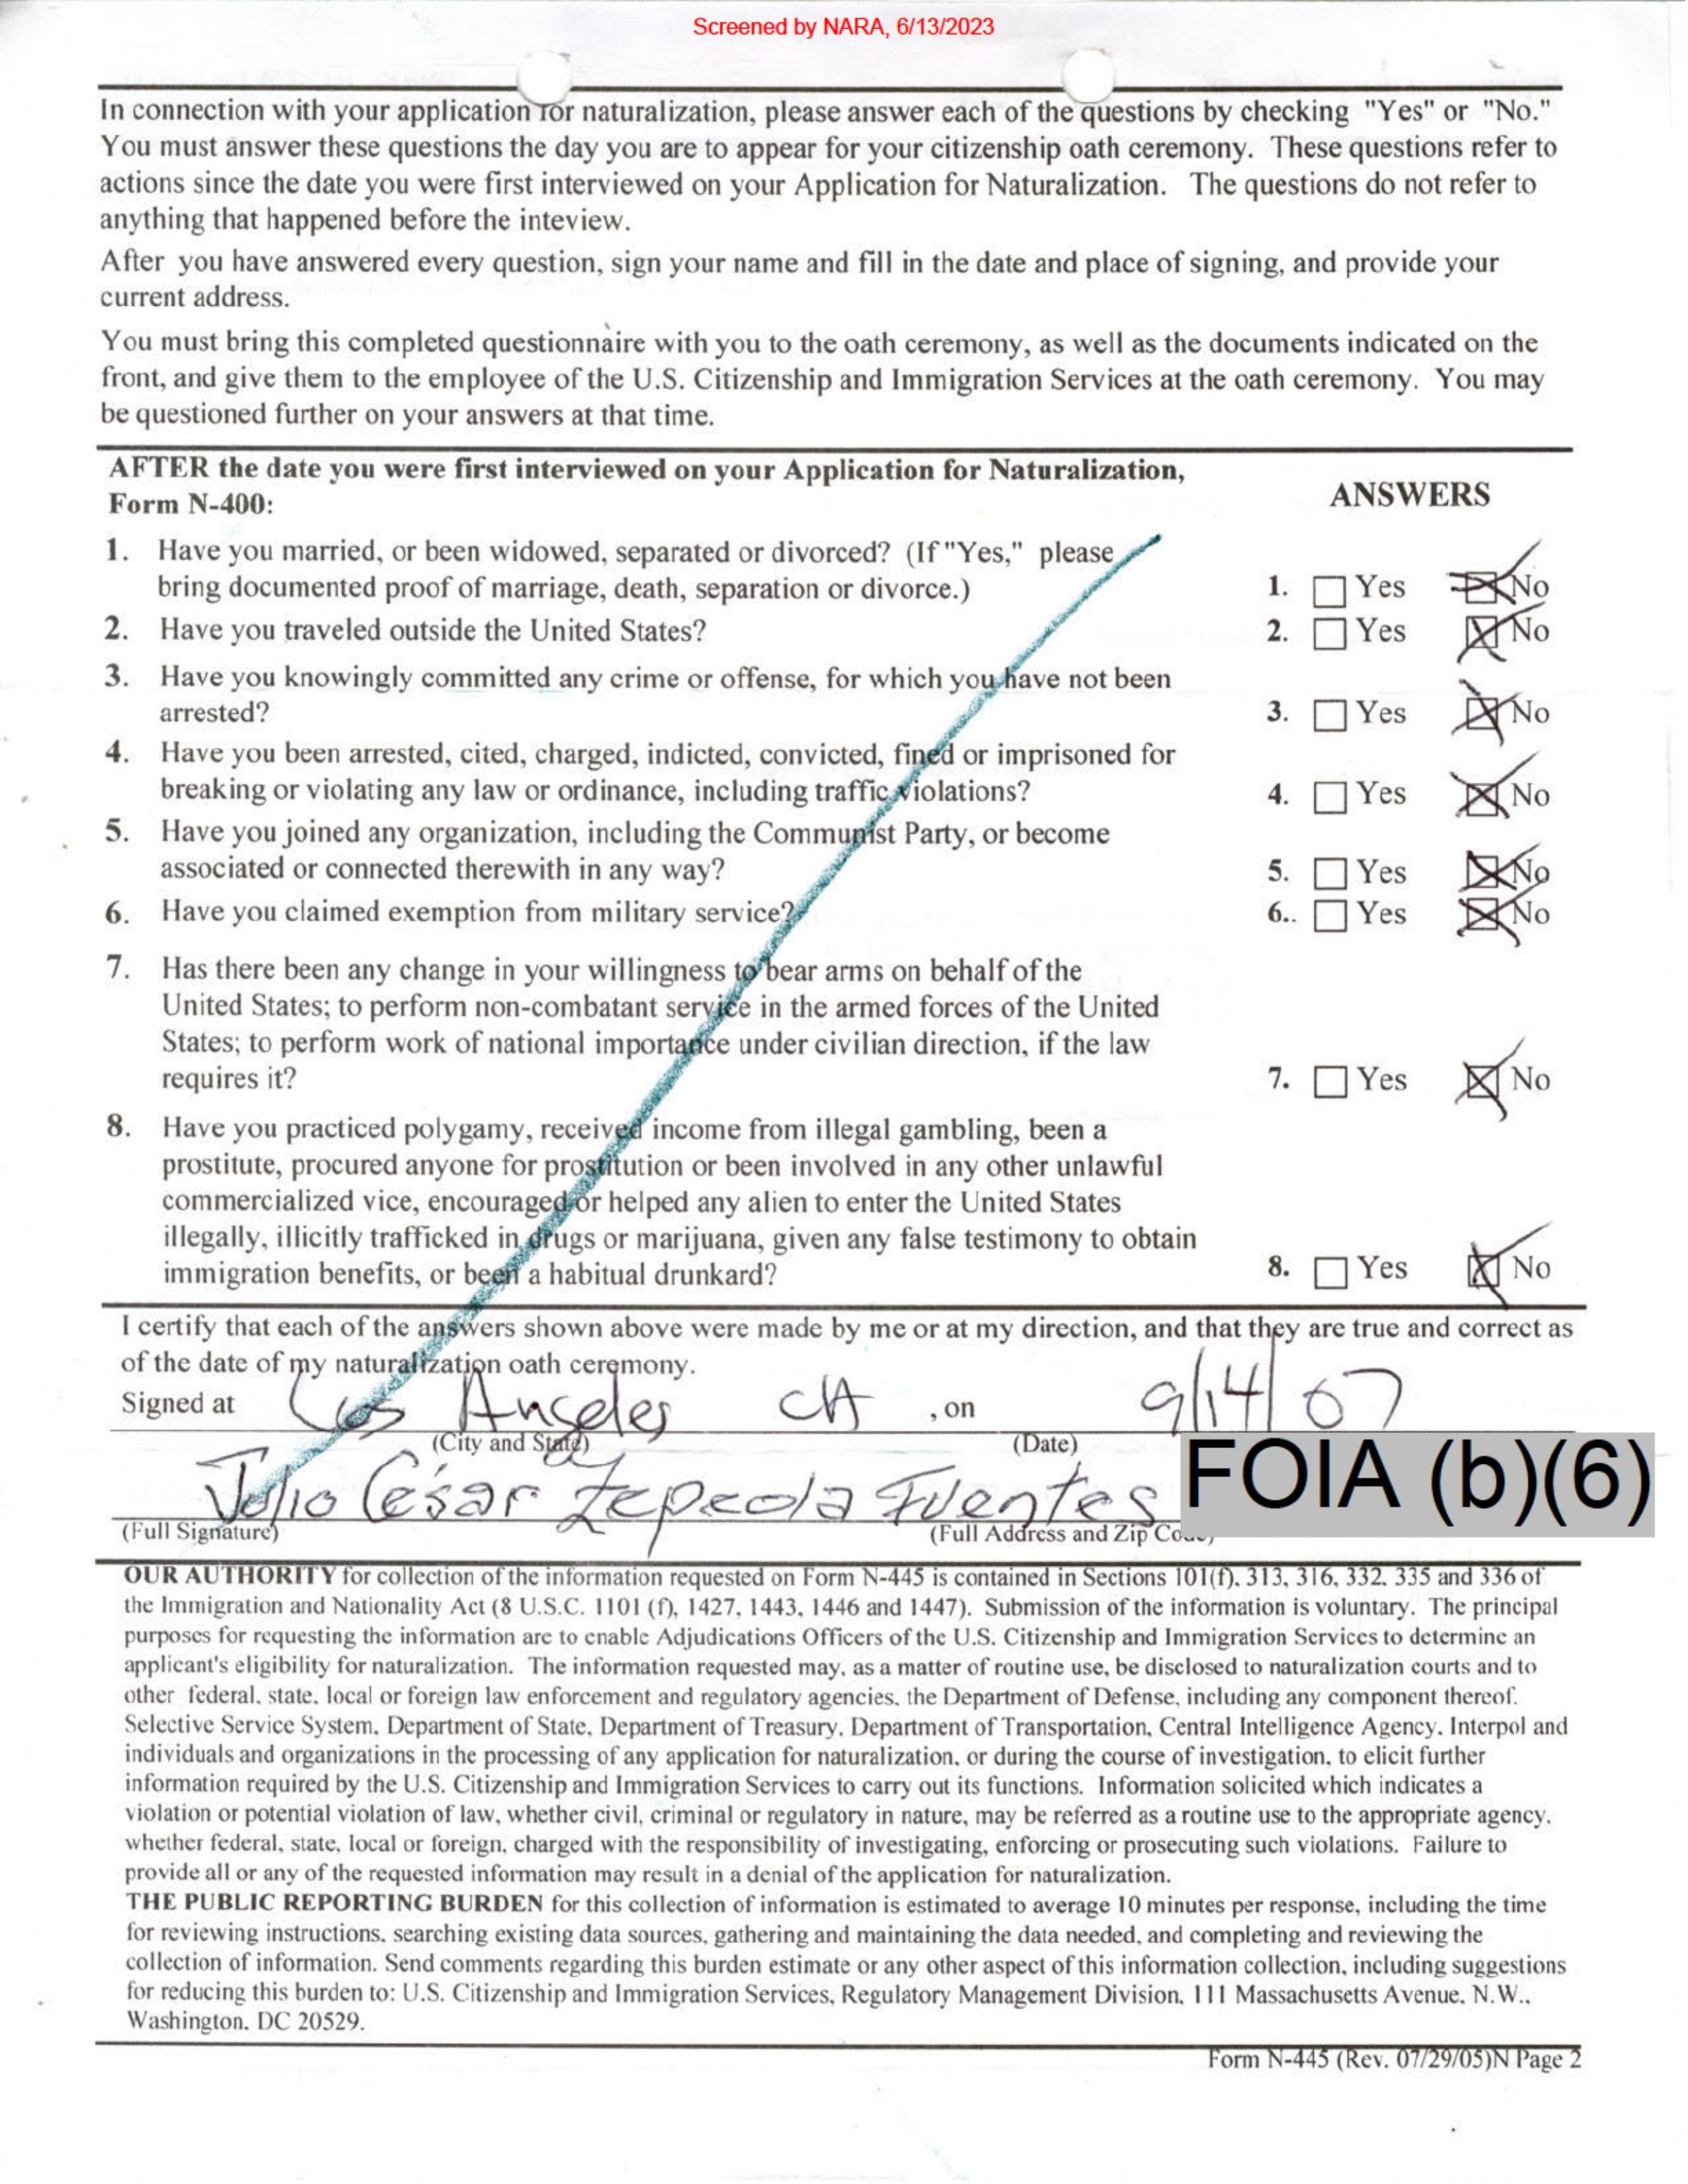 Screened by NARA, 6/13/2023
In connection with your application for naturalization, please answer each of the questions by checking "Yes" or "No."
You must answer these questions the day you are to appear for your citizenship oath ceremony. These questions refer to
actions since the date you were first interviewed on your Application for Naturalization. The questions do not refer to
anything that happened before the inteview.
After you have answered every question, sign your name and fill in the date and place of signing, and provide your
current address.
You must bring this completed questionnaire with you to the oath ceremony, as well as the documents indicated on the
front, and give them to the employee of the U.S. Citizenship and Immigration Services at the oath ceremony. You may
be questioned further on your answers at that time.
AFTER the date you were first interviewed on your Application for Naturalization,
Form N-400:
ANSWERS
1. Have you married, or been widowed, separated or divorced? (If "Yes," please
bring documented proof of marriage, death, separation or divorce.)
1. Yes No
2. Have you traveled outside the United States?
2. Yes No
3. Have you knowingly committed any crime or offense, for which you have not been
arrested?
3. Yes No
4. Have you been arrested, cited, charged, indicted, convicted, fined or imprisoned for
breaking or violating any law or ordinance, including traffic violations?
4. Yes No
5. Have you joined any organization, including the Communist Party, or become
associated or connected therewith in any way?
5. Yes No
6. Have you claimed exemption from military service?
6.. Yes No
7. Has there been any change in your willingness to bear arms on behalf of the
United States; to perform non-combatant service in the armed forces of the United
States; to perform work of national importance under civilian direction, if the law
requires it?
7. Yes No
8. Have you practiced polygamy, received income from illegal gambling, been a
prostitute, procured anyone for prostitution or been involved in any other unlawful
commercialized vice, encouraged or helped any alien to enter the United States
illegally, illicitly trafficked in drugs or marijuana, given any false testimony to obtain
immigration benefits, or been a habitual drunkard?
8. Yes No
I certify that each of the answers shown above were made by me or at my direction, and that they are true and correct as
of the date of my naturalization oath ceremony.
Signed at Los Angeles CA , on 9/14/07
(City and State) (Date)
Julio César Zepeda Fuentes FOIA (b)(6)
(Full Signature) (Full Address and Zip Code)
OUR AUTHORITY for collection of the information requested on Form N-445 is contained in Sections 101(f), 313, 316, 332, 335 and 336 of
the Immigration and Nationality Act (8 U.S.C. 1101 (f), 1427, 1443, 1446 and 1447). Submission of the information is voluntary. The principal
purposes for requesting the information are to enable Adjudications Officers of the U.S. Citizenship and Immigration Services to determine an
applicant's eligibility for naturalization. The information requested may, as a matter of routine use, be disclosed to naturalization courts and to
other federal, state, local or foreign law enforcement and regulatory agencies, the Department of Defense, including any component thereof.
Selective Service System, Department of State, Department of Treasury, Department of Transportation, Central Intelligence Agency, Interpol and
individuals and organizations in the processing of any application for naturalization, or during the course of investigation, to elicit further
information required by the U.S. Citizenship and Immigration Services to carry out its functions. Information solicited which indicates a
violation or potential violation of law, whether civil, criminal or regulatory in nature, may be referred as a routine use to the appropriate agency,
whether federal, state, local or foreign, charged with the responsibility of investigating, enforcing or prosecuting such violations. Failure to
provide all or any of the requested information may result in a denial of the application for naturalization.
THE PUBLIC REPORTING BURDEN for this collection of information is estimated to average 10 minutes per response, including the time
for reviewing instructions, searching existing data sources, gathering and maintaining the data needed, and completing and reviewing the
collection of information. Send comments regarding this burden estimate or any other aspect of this information collection, including suggestions
for reducing this burden to: U.S. Citizenship and Immigration Services, Regulatory Management Division, 111 Massachusetts Avenue, N.W.,
Washington, DC 20529.
Form N-445 (Rev. 07/29/05)N Page 2